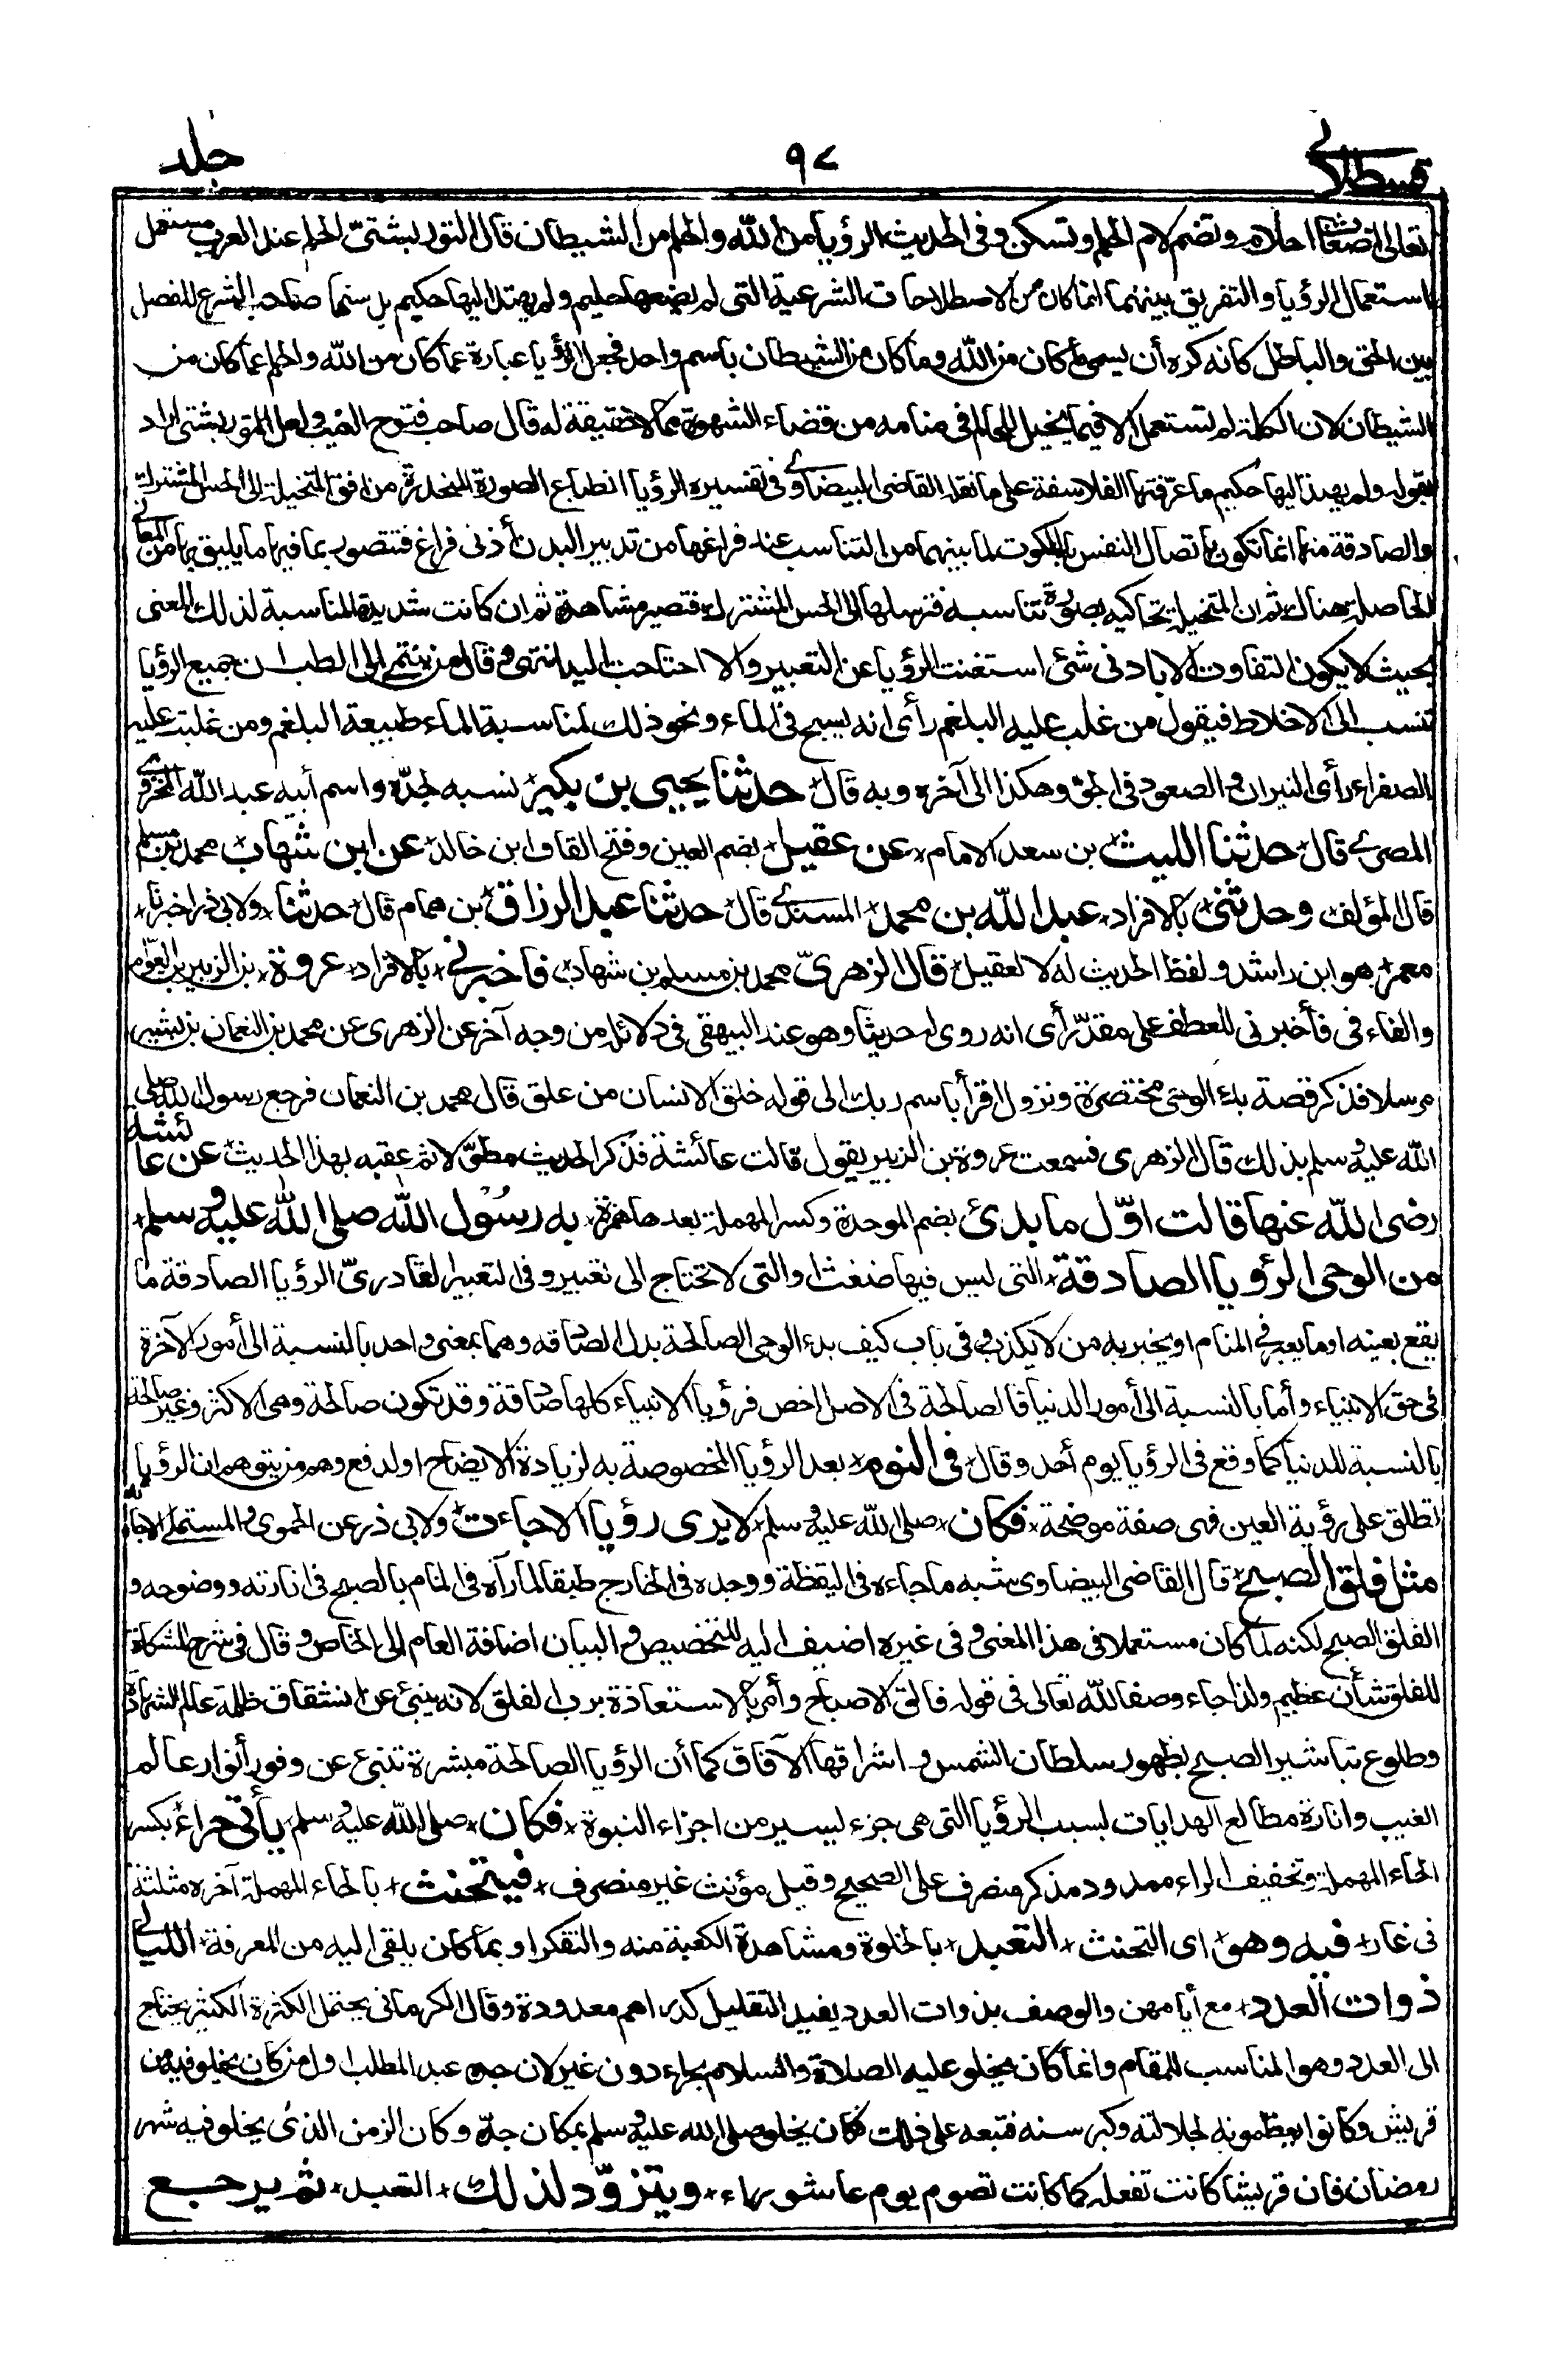 قسطلانى
٩٧
جلد
تعالى أضغاث أحلام وتضم لام الحلم وتسكن وفى الحديث الرؤيا من الله والحلم من الشيطان قال التوربشتىّ الحلم عند العرب مستعمل
استعمال الرؤيا والتفريق بينهما انما كان من الاصطلاحات الشرعية التى لم يضعها حليم ولم يهتد اليها حكيم بل سنها صاحب الشرع للفصل
بين الحق والباطل كانه كره أن يسمى ما كان من الله وما كان من الشيطان باسم واحد فجعل الرؤيا عبارة عما كان من الله والحلم عما كان من
الشيطان لان الكلمة لم تستعمل الا فيما يخيل للحالم فى منامه من قضاء الشهوة مما لا حقيقة له قال صاحب فتوح الغيب ولعل التوربشتى اراد
بقوله ولم يهتد اليها حكيم ما عرّفتها الفلاسفة على ما نقله القاضى البيضاوى فى تفسيره الرؤيا انطباع الصورة المنحدرة من افق المتخيلة الى الحس المشترك
والصادقة منها انما تكون باتصال النفس بالملكوت لما بينهما من التناسب عند فراغها من تدبير البدن أدنى فراغ فتتصور بما فيها ما يليق بها من المعانى
الحاصلة هناك ثم ان المتخيلة تحاكيه بصورة تناسبه فترسلها الى الحس المشترك فتصير مشاهدة ثم ان كانت شديدة المناسبة لذلك المعنى
بحيث لا يكون التفاوت الا بادنى شئ استغنت الرؤيا عن التعبير والا احتاجت اليه انتهى وقال من ينتمى الى الطب ان جميع الرؤيا
تنسب الى الاخلاط فيقول من غلب عليه البلغم رأى انه يسبح فى الماء ونحو ذلك لمناسبة الماء طبيعة البلغم ومن غلبت عليه
الصفراء رأى النيران والصعود فى الجو وهكذا الى آخره وبه قال حدثنا يحيى بن بكير نسبه لجدّه واسم أبيه عبد الله المخزومى
المصرى قال حدثنا الليث بن سعد الامام عن عقيل بضم العين وفتح القاف ابن خالد عن ابن شهاب محمد بن مسلم
قال المؤلف وحدثنى بالافراد عبد الله بن محمد المسندى قال حدثنا عبد الرزاق بن همام قال حدثنا ولابى ذر اخبرنا
معمر هو ابن راشد ولفظ الحديث له لا لعقيل قال الزهرىّ محمد بن مسلم بن شهاب فاخبرنى بالافراد عروة بن الزبير بن العوّام
والفاء فى فأخبرنى للعطف على مقدّر أى انه روى له حديثا وهو عند البيهقى فى دلائله من وجه آخر عن الزهرى عن محمد بن النعمان بن بشير
مرسلا فذكر قصة بدء الوحى مختصرة ونزول اقرأ باسم ربك الى قوله خلق الانسان من علق قال محمد بن النعمان فرجع رسول الله صلى
الله عليه وسلم بذلك قال الزهرى فسمعت عروة بن الزبير يقول قالت عائشة فذكر الحديث مطوّلا ثم عقبه بهذا الحديث عن عائشة
رضى الله عنها قالت اوّل ما بدئ بضم الموحدة وكسر المهملة بعدها همزة به رسول الله صلى الله عليه وسلم
من الوحى الرؤيا الصادقة التى ليس فيها ضغث او التى لا تحتاج الى تعبير وفى التعبير القادرىّ الرؤيا الصادقة ما
يقع بعينه او ما يعبر فى المنام او يخبر به من لا يكذب وفى باب كيف بدء الوحى الصالحة بدل الصادقه وهما بمعنى واحد بالنسبة الى أمور الآخرة
فى حق الانبياء وأما بالنسبة الى أمور الدنيا فالصالحة فى الاصل اخص فرؤيا الانبياء كلها صادقة وقد تكون صالحة وهى الاكثر وغير صالحة
بالنسبة للدنيا كما وقع فى الرؤيا يوم أحد وقال فى النوم بعد الرؤيا المخصوصة به لزيادة الايضاح او لدفع وهم من يتوهم ان الرؤيا
تطلق على رؤية العين فهى صفة موضحة فكان صلى الله عليه وسلم لا يرى رؤيا الا جاءت ولابى ذر عن الحموى والمستملى الا جاءته
مثل فلق الصبح قال القاضى البيضاوى شبه ما جاءه فى اليقظة ووجده فى الخارج طبقا لما رآه فى المنام بالصبح فى انارته ووضوحه و
الفلق الصبح لكنه لما كان مستعملا فى هذا المعنى وفى غيره اضيف اليه للتخصيص والبيان اضافة العام الى الخاص وقال فى شرح المشكاة
للفلق شأن عظيم ولذا جاء وصفا لله تعالى فى قوله فالق الاصباح وأمر بالاستعاذة برب الفلق لانه ينبئ عن انشقاق ظلمة عالم الشهادة
وطلوع تباشير الصبح بظهور سلطان الشمس واشراقها الآفاق كما أن الرؤيا الصالحة مبشرة تنبئ عن وفور أنوار عالم
الغيب وانارة مطالع الهدايات بسبب الرؤيا التى هى جزء يسير من اجزاء النبوة فكان صلى الله عليه وسلم يأتى حراء بكسر
الحاء المهملة وتخفيف الراء ممدود مذكر منصرف على الصحيح وقيل مؤنث غير منصرف فيتحنث بالحاء المهملة آخره مثلثة
فى غار فيه وهو اى التحنث التعبد بالخلوة ومشاهدة الكعبة منه والتفكر او بما كان يلقى اليه من المعرفة الليالى
ذوات العدد مع أيامهن والوصف بذوات العدد يفيد التقليل كدراهم معدودة وقال الكرمانى يحتمل الكثرة اذ الكثير يحتاج
الى العدد وهو المناسب للمقام وانما كان يخلو عليه الصلاة والسلام بحراء دون غيره لان جده عبد المطلب اول من كان يخلو فيه من
قريش وكانوا يعظمونه لجلالته وكبر سنه فتبعه على ذلك فكان يخلو صلى الله عليه وسلم بمكان جدّه وكان الزمن الذى يخلو فيه شهر
رمضان فان قريشا كانت تفعله كما كانت تصوم يوم عاشوراء ويتزوّد لذلك التعبد ثم يرجع